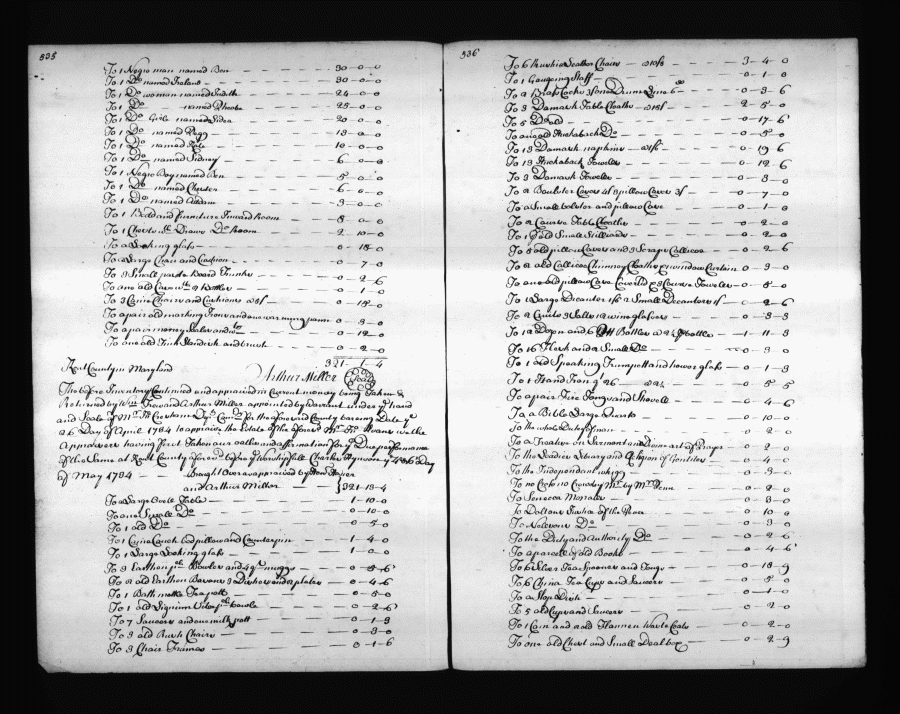 535
To 1 Negro man named Ben — 30-0-0
To 1 Do named Ireland — 30-0-0
To 1 Do woman named Judith — 24-0-0
To 1 Do — named Phoebe — 25-0-0
To 1 Do Girle named — 20-0-0
To 1 Do named Pegg — 18-0-0
To 1 Do named — 10-0-0
To 1 Do named Sidney — 6-0-0
To 1 Negro Boy named Ben — 5-0-0
To 1 Do named Chester — 6-0-0
To 1 Do named Adam — 3-0-0
To 1 Bedd and furniture Inward Room — 8-0-0
To 1 Chest with Draws Do Room — 2-10-0
To a Looking glass — 0-18-0
To a Large Chair and Cushion — 0-7-0
To 3 Small past Board Trunks — 2-6
To one old Case wth 2 Bottles — 0-1-0
To 3 Caine Chairs and Cushions — 0-18-0
To a pair old marking Irons and one warming pann — 0-3-0
To a pair money Scales and — 0-12-0
To one old Ink Standish and brush — 0-2-0
321-1-4
Kent County in Maryland
Arthur Miller (Seale)
The before Inventory Continued and appraised in Current money being Taken &
Returned by and Arthur Miller appointed by Warrant under ye hand
and Seale of Mr Dy Comry for the aforesaid County bareing Date ye
26 Day of April 1734 to appraise the Estate of the aforesd Mr we the
Appraisers having first Taken our oathe and affirmation for ye Due performance
of the Same at Kent County aforesd before ye Worshipfull Charles Hynson ye 4th Day
of May 1734 — Brought Over appraised by
and Arthur Miller — 321-13-4
To a Large Table — 1-10-0
To one Small Do — 0-10-0
To 1 old Do — 0-5-0
To 1 Caine Couch Bed pillow and Counterpin — 1-4-0
To 1 Large Looking glass — 1-0-0
To 3 Earthen Bowles and 4 muggs — 0-5-6
To 2 old Earthen Basons 3 Dishes and 2 plates — 0-4-6
To 1 Bath mettle Tea pott — 0-5-0
To 1 old Bowle — 0-2-6
To 7 Saucers and one milk pott — 0-1-3
To 3 old Rush Chairs — 0-3-0
To 3 Chair Frames — 0-1-6
536
To 6 Rushia Leather Chairs — 3-4-0
To 1 Gauging Staff — 0-1-0
To a Brass Cock — 0-3-6
To 3 Damask Table Cloaths — 2-5-0
To 5 Do old — 0-17-6
To an old Huckaback Do — 0-5-0
To 13 Damask napkins — 0-19-6
To 13 Huckaback Towels — 0-12-6
To 3 Damask Towels — 0-3-0
To 2 Boulster Cases 4s 2 pillow Cases 3s — 0-7-0
To a Small bolster and pillow Case — 0-1-0
To 2 Course Table Cloaths — 0-2-0
To 1 old Small Stilliards — 0-2-0
To 5 old pillow Cases and 3 Scraps Callicoe — 0-2-6
To 2 old Callicoe Chimney Cloaths & window Curtain — 0-3-0
To one old pillow Case & Course Towels — 0-5-0
To 1 Large Decanter 2 Small Decanters — 0-2-6
To 2 Cruits 3 Salts 12 wine glasses — 0-3-3
To 12 Dozn and 6 Bottles — 1-11-3
To 16 Flask and 2 Small Do — 0-3-0
To 1 old Speaking Trumpett and hower glass — 0-1-3
To 1 Hand Iron — 0-5-5
To a pair Fire Tongs and Shovell — 0-4-6
To a Bible Large Quarto — 0-10-0
To the whole Duty of man — 0-2-0
To a Treatise on Sacrament and Divine art of Prayer — 0-2-0
To the Ladies Library and Religion of Gentiles — 0-4-0
To the Independent whigg — 0-3-0
To no Cross no Crown by Mr Penn — 0-2-0
To Seneca Morals — 0-3-0
To Daltons Justice of the Peace — 0-10-0
To Nelsons Do — 0-3-0
To the Duty and Authority Do — 0-2-6
To a parcell of old Books — 0-4-6
To 6 Silver Tea Spoones and Tongs — 0-18-9
To 6 China Tea Cups and Saucers — 0-5-0
To a Slop Dish — 0-1-0
To 5 old Cups and Saucers — 0-2-0
To 1 Coin and 2 old Flannen Waste Coats — 0-2-0
To one old Chest and Small Deal box — 0-2-9